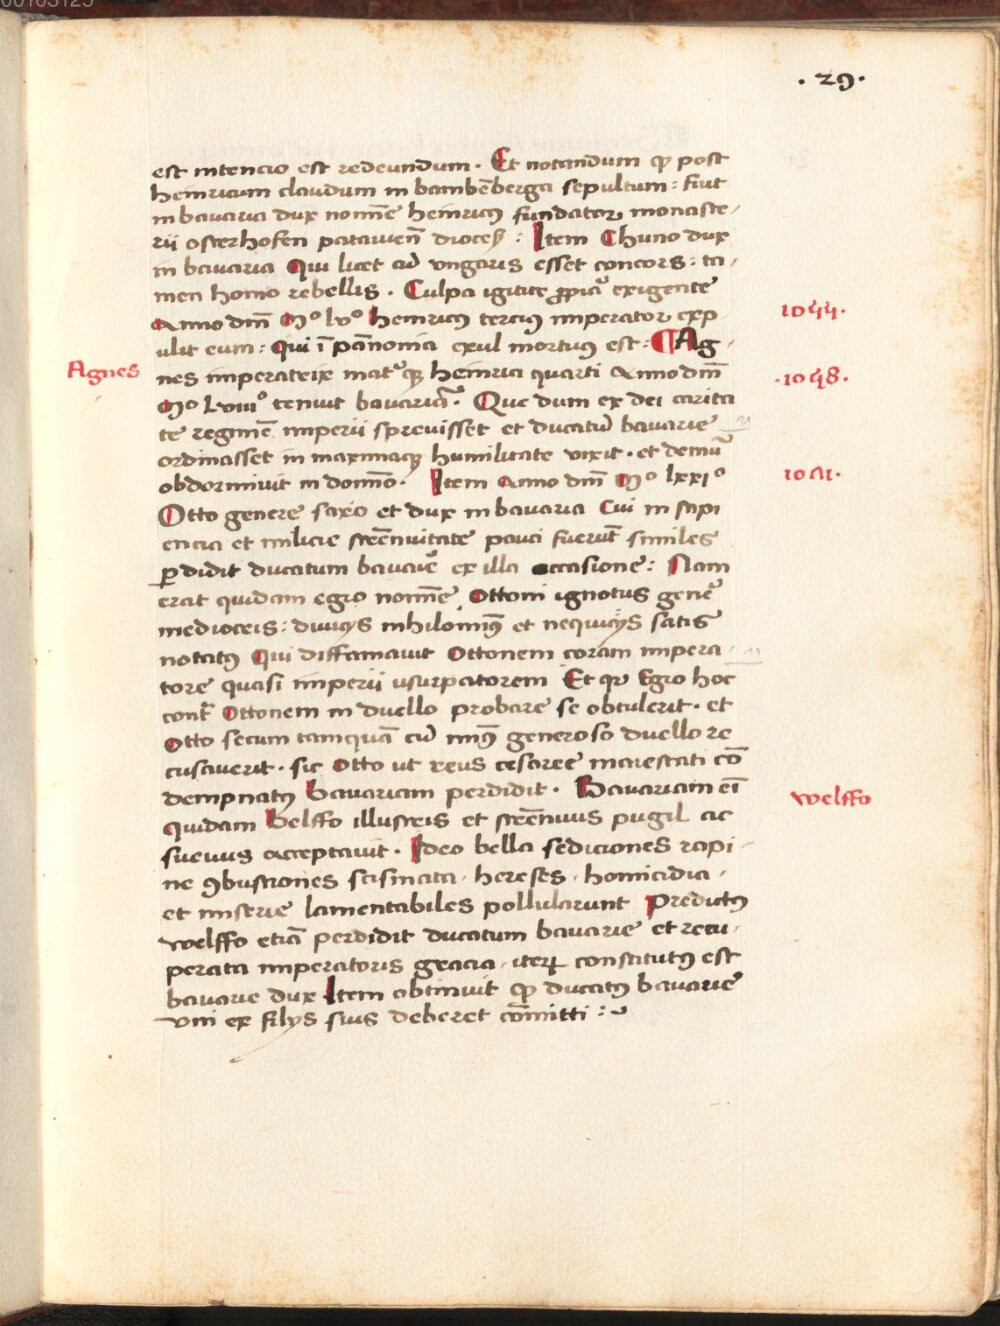 00103125
. 29 .
est intencio est redeundum . Et notandum ꝙ post
heinricum claudum in bambēberga sepultum : fiut
in bavaria dux nomīe heinricꝯ fundator monaste⸗
rii osterhofen patavien̄ dioces̄ : Item Chuno dux
in bavaria Qui licet cū vngaris esset concors : ta⸗
men homo rebellis . Culpa igitur ꝓpria exigente
Anno dn̄i Mº lvº heinricꝯ tercius imperator exp⸗
ulit eum : Qui ī pānonia exul mortuꝯ est : ¶ Ag⸗
nes imperatrix mat̾qꝫ heinrici quarti Anno dn̄i
Mº lviiiº tenuit bavariā . Que dum ex dei carita
te regimē imperii sprevisset et ducatū bavarie
ordinasset in maximaqꝫ humilitate vixit . et demū
obdormivit in domīo . Item Anno dn̄i Mº lxxiº
Otto genere saxo et dux in bavaria Cui in sapi
encia et milicie strēnuitate pauci fuerūt similes
ꝑdidit ducatum bavarie ex illa occasione : Nam
erat quidam egio nomīe Ottoni ignotus gene̾
mediocris : divicijs nihilominꝯ et nequicijs satis
notatꝯ Qui diffamavit Ottonem coram impera⸗
tore quasi imperii usurpatorem Et qꝛ Egio hoc
cont̄ Ottonem in duello probare se obtulerit . et
Otto secum tamquā cū minꝯ generoso duello re
cusaverit . sic Otto ut reus cesaree maiestati cō
dempnatꝯ bavariam perdidit . Bavariam eī
quidam Belffo illustris et strēnuus pugil ac
suevus acceptavit . Ideo bella sediciones rapi⸗
ne ꝯbustiones scismata . hereses . homicidia .
et miserie lamentabiles pollularunt Predictꝯ
welffo etiā perdidit ducatum bavarie et recu⸗
perata imperatoris gracia . iteꝝ constitutꝯ est
bavarie dux Item obtinuit ꝙ ducatꝯ bavarie
vni ex filijs suis deberet cōmitti :
Agnes
1055 .
. 1058 .
1071 .
welffo